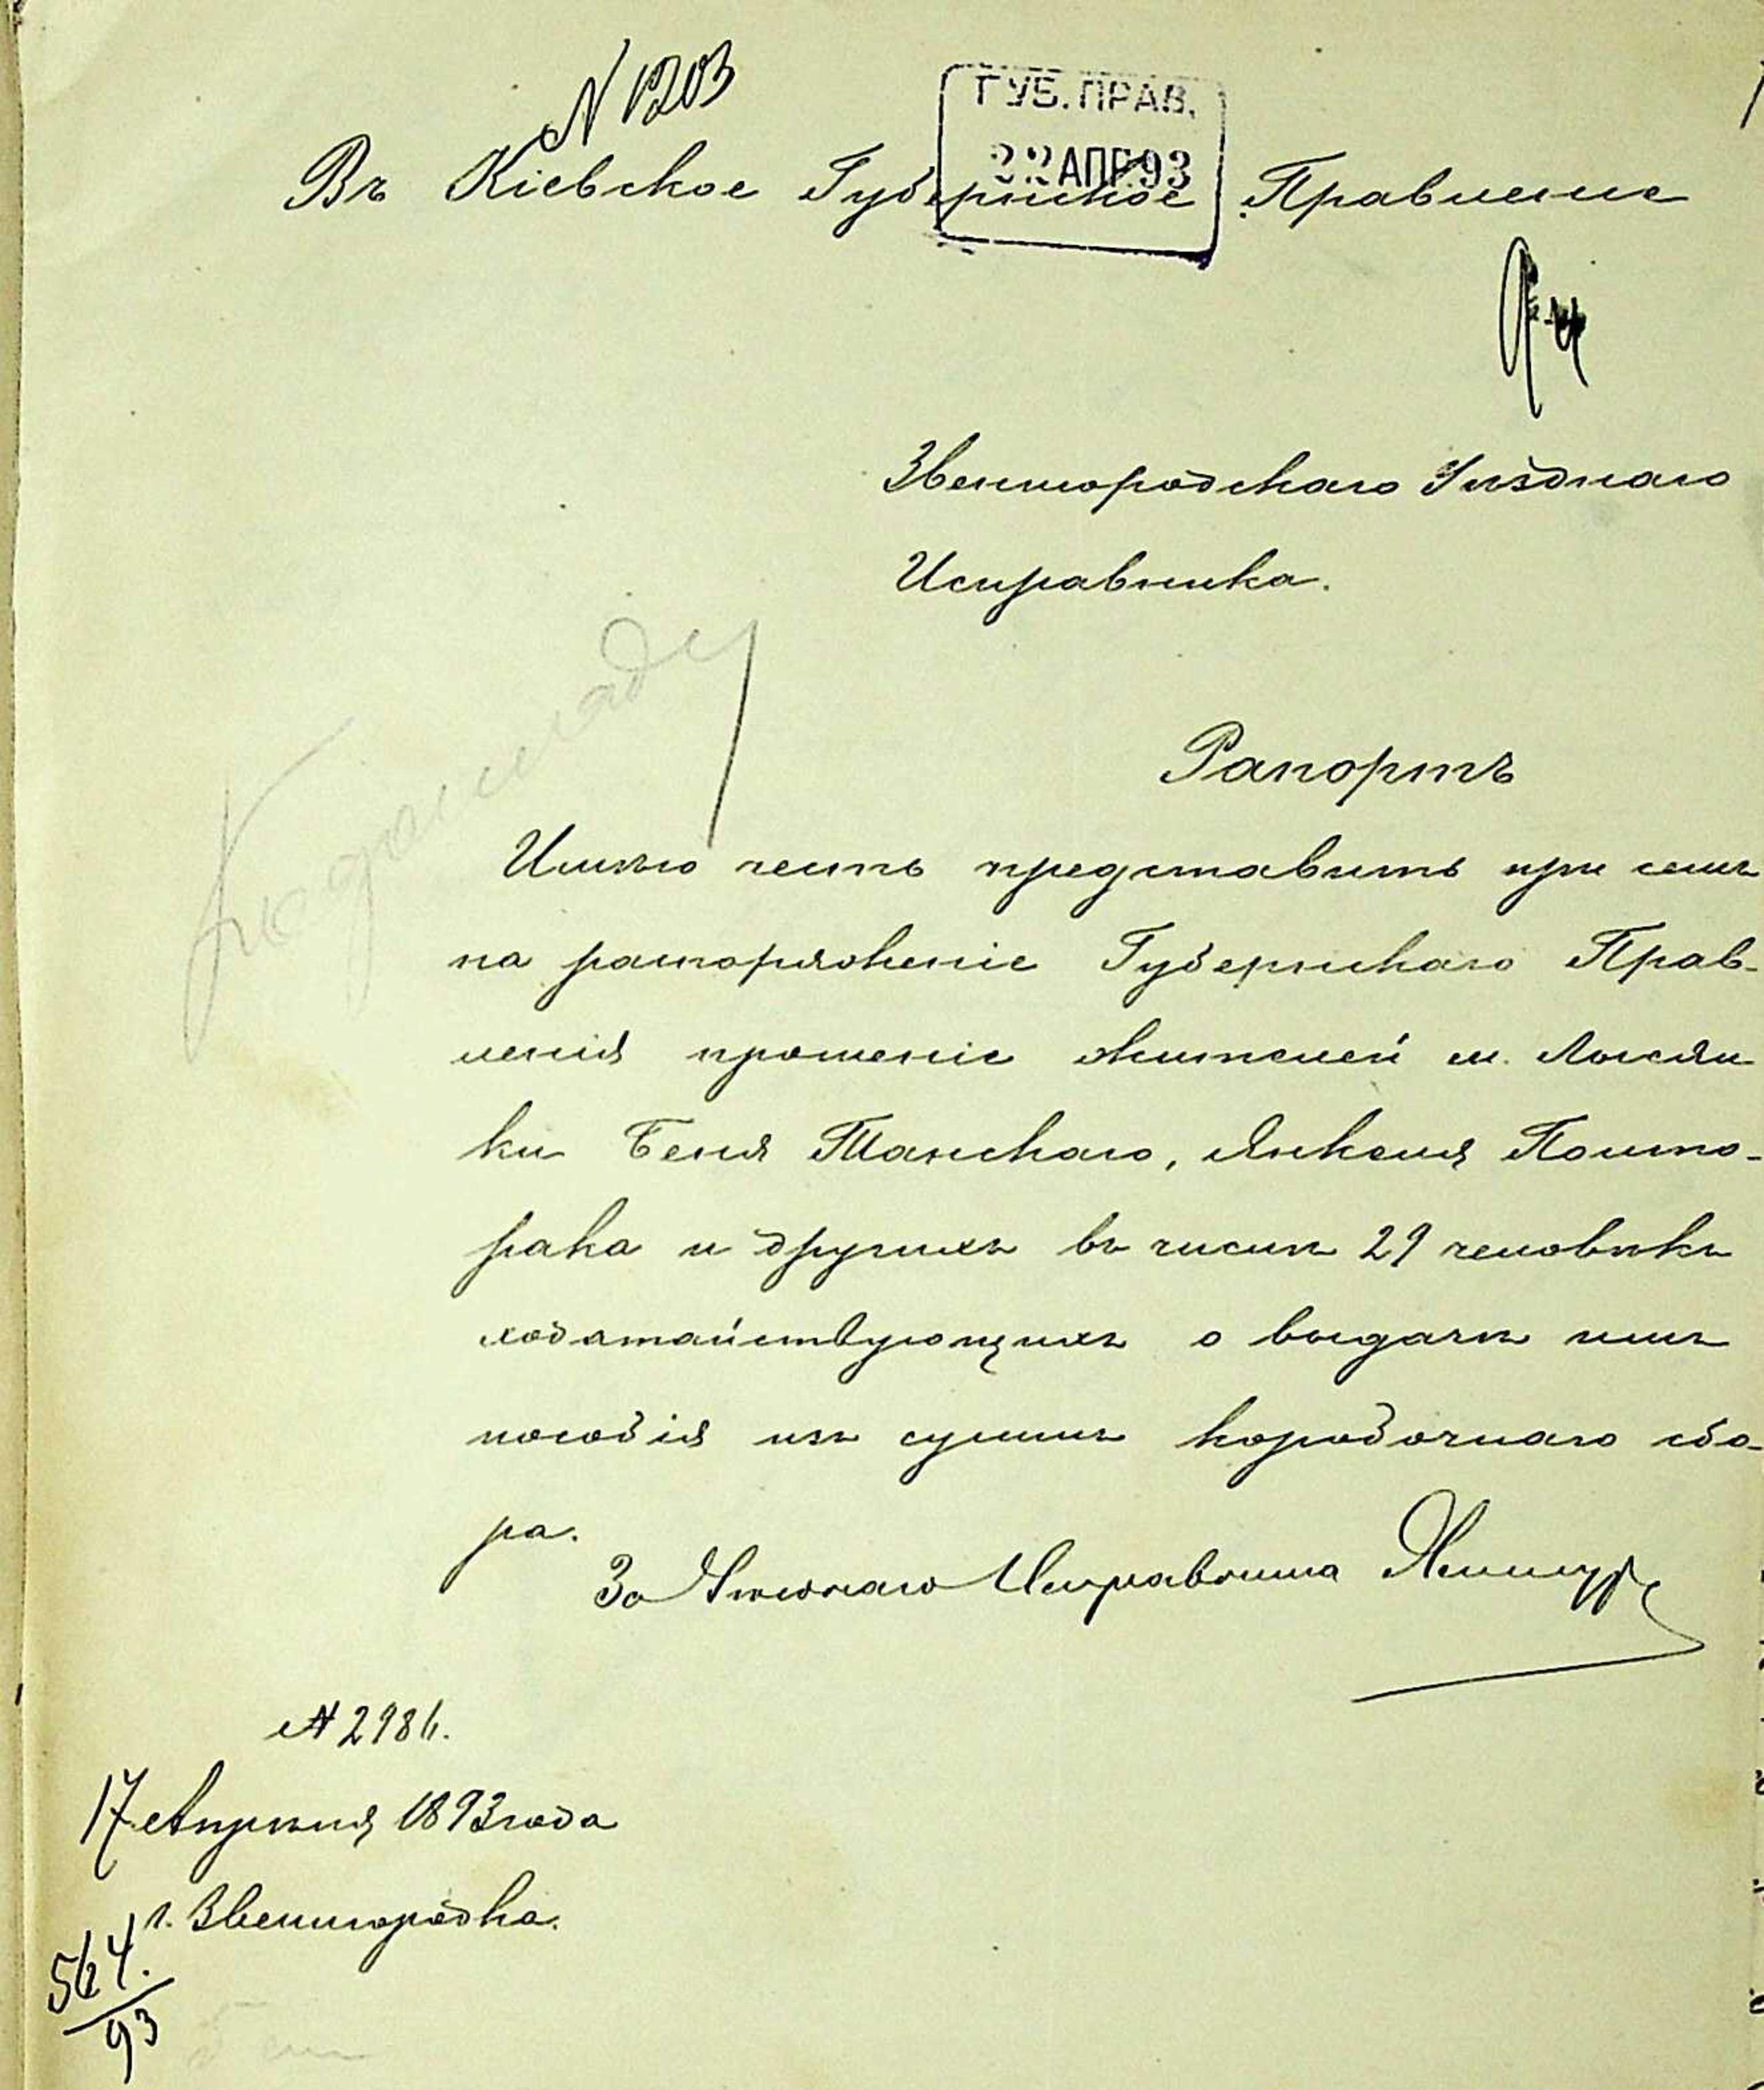 N 1203
ГУБ. ПРАВ.
22 АПР. 93
Въ Кіевское Губернское Правленіе
Звенигородскаго Уѣзднаго
Исправника.
Рапортъ
Имѣю честь представить при семъ
на распоряженіе Губернскаго Прав-
ленія прошеніе жителей м. Лысян-
ки Беня Танскаго, Янкеля Полто-
рака и другихъ въ числѣ 29 человѣкъ
ходатайствующихъ о выдачѣ имъ
пособія изъ суммъ коробочнаго сбо-
ра.
За Уѣзднаго Исправника
№ 2986.
17 Апрѣля 1893 года
г. Звенигородка.
564.
93